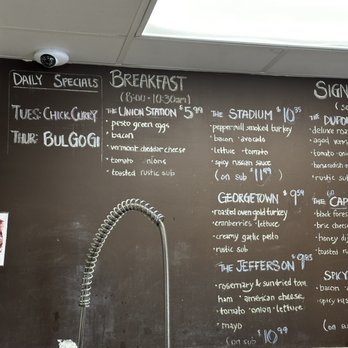 DAILY SPECIALS
TUES: CHICK CURRY
THUR: BULGOGI
BREAKFAST
(8:00-10:30am)
THE UNION STATION $5.99
• pesto green eggs
• bacon
• vermont cheddar cheese
• tomato • onions
• toasted rustic sub
THE STADIUM $10.35
• peppermill smoked turkey
• bacon • avocado
• lettuce • tomato
• spicy russian sauce
(on sub $11.99)
GEORGETOWN $9.59
• roasted oven gold turkey
• cranberries • lettuce
• creamy garlic pesto
• rustic sub
THE JEFFERSON $9.85
• rosemary & sundried tom.
ham • american cheese
• tomato • onion • lettuce
• mayo
(on sub $10.99)
SIGN
THE DUPO
• deluxe roas
• aged verm
• tomato • oni
• horseradish
• rustic sub
THE CAP
• black fores
• bric chee
• honey dij
• toasted
SPICY
• bacon
• spicy